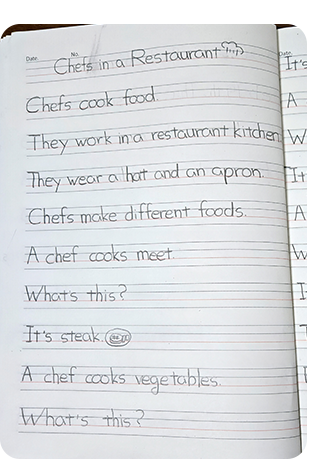 Date No.
Chefs in a Restaurant
Chefs cook food.
They work in a restaurant kitchen
They wear a hat and an apron.
Chefs make different foods.
A chef cooks meet.
What's this?
It's steak.
A chef cooks vegetables.
What's this?
Date
It's
A
W
It
A
W
I